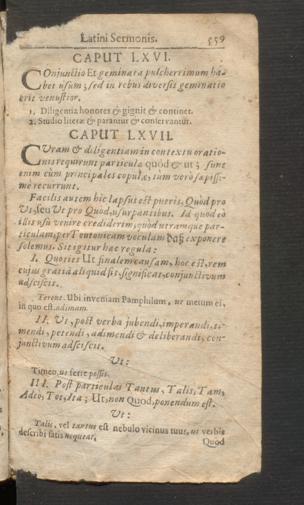 Latini Sermonis. 559
CAPUT LXVI.
COnjunctio Et geminata pulcherrimum ha-
bet usum; sed in rebus diversis geminatio
erit venustior.
1. Diligentia honores & gignit & continet.
2. Studio literæ & parantur & conservantur.
CAPUT LXVII.
CUram & diligentiam in contextu oratio-
nis requirunt particulæ quòd & ut; sunt
enim cùm principales copulæ, tum verò sæpissi-
mè recurrunt.
Facilis autem hîc lapsus est pueris, Quòd pro
Ut, seu Ut pro Quod, usurpantibus. Id quod eò
illis usu venire crediderim, quòd utramque par-
ticulam, per Teutonicam voculam daß exponere
solemus. Sit igitur hæc regula:
I. Quoties Ut finalem causam, hoc est, rem
cujus gratiâ aliquid fit, significat, conjunctivum
adsciscit.
Terent. Ubi inveniam Pamphilum, ut metum ei,
in quo est, adimam.
II. Ut, post verba jubendi, imperandi, ti-
mendi, petendi, adimendi & deliberandi, con-
junctivum adsciscit.
Ut:
Timeo, ut ferre possis.
III. Post particulas Tantus, Talis, Tam,
Adeò, Tot, Ita; Ut, non Quod, ponendum est.
Ut:
Talis, vel tantus est nebulo vicinus tuus, ut verbis
describi satis nequeat.
Quod